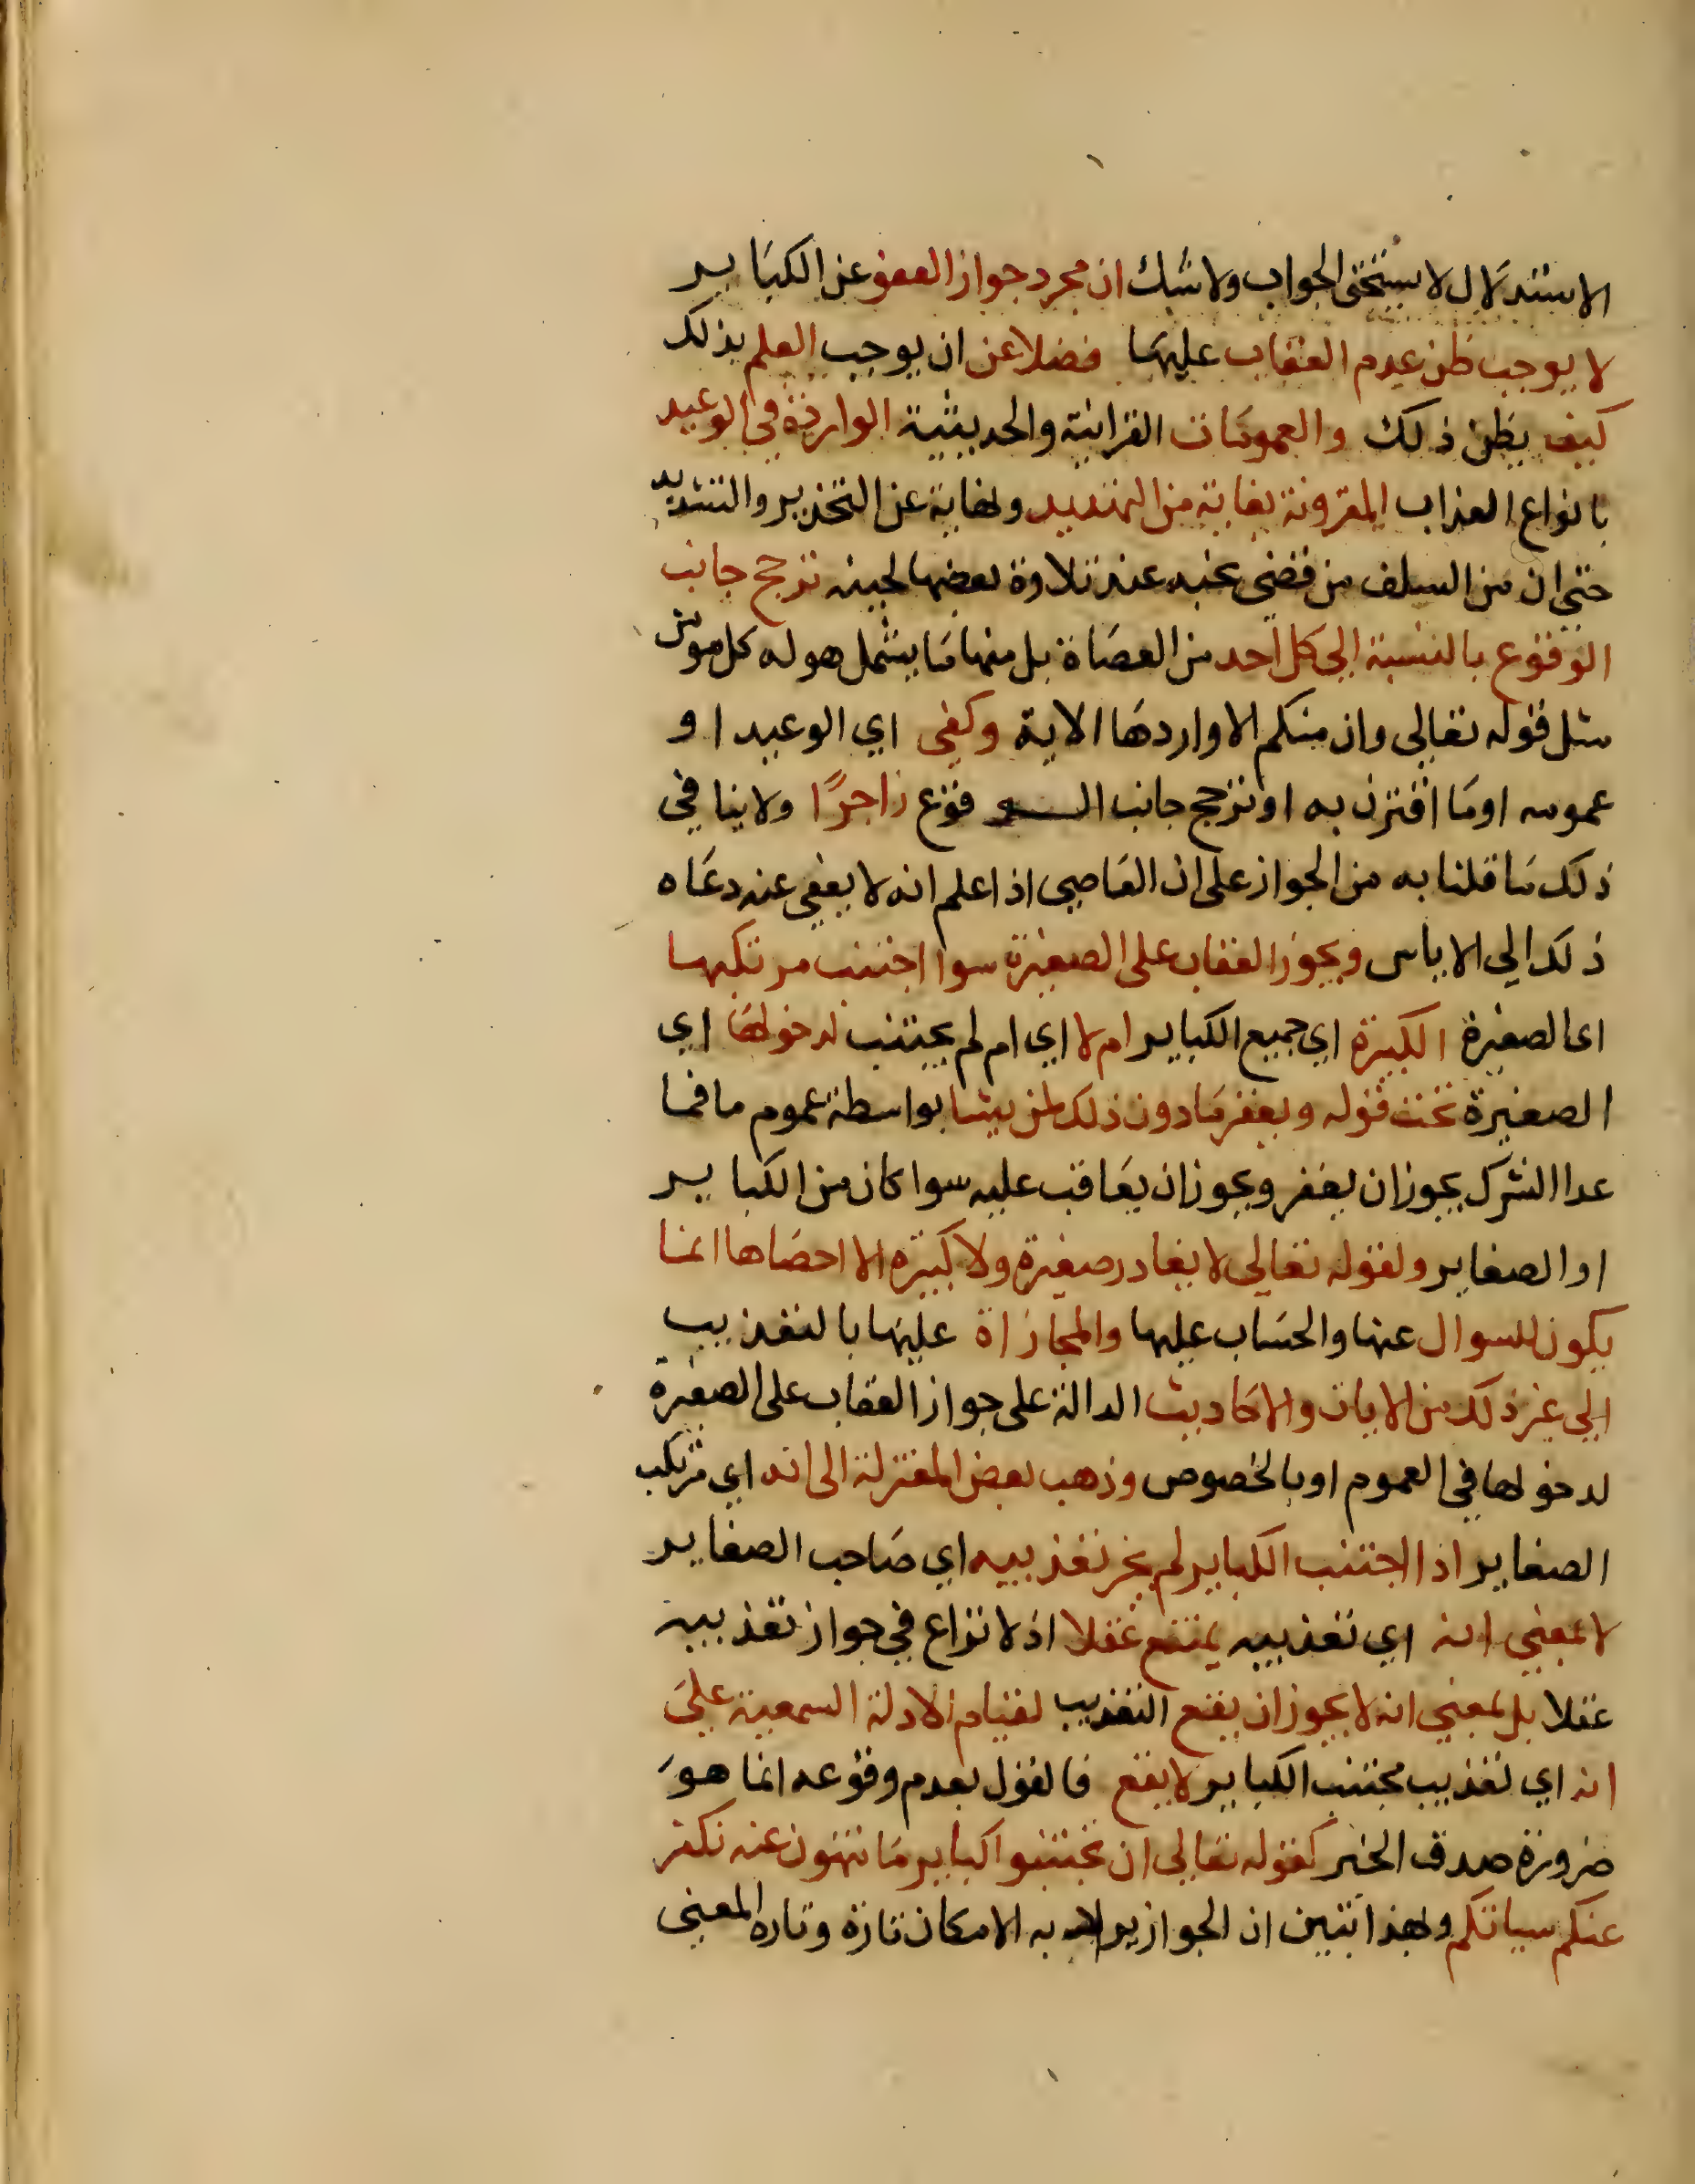 الاستدلال لا يستحق الجواب ولا شك ان مجرد جواز العفو عن الكباير
لا يوجب ظن عدم العقاب عليها فضلا عن ان يوجب العلم بذلك
كيف يظن ذلك والعمومات القرانية والحديثية الواردة في الوعيد
بانواع العذاب المقرونة بغاية من التهديد ونهاية عن التحذير والتشديد
حتي ان من السلف من قضي نحبه عند تلاوة بعضها لحينه ترجح جانب
الوقوع بالنسبة الي كل احد من العصاة بل منها ما يشمل هوله كل مومن
مثل قوله تعالي وان منكم الا واردها الاية وكفي اي الوعيد او
عمومه او ما اقترن به او ترجح جانب الو قوع زاجرًا ولا ينافي
ذلك ما قلنا به من الجواز علي ان العاصي اذا علم انه لا يعفي عنه دعاه
ذلك الي الاياس ويجوز العقاب علي الصغيرة سوا اجتنب مرتكبها
اي الصغيرة الكبيرة اي جميع الكباير ام لا اي ام لم يجتنب لدخولها اي
الصغيرة تحت قوله ويغفر ما دون ذلك لمن يشا بواسطة عموم ما فما
عدا الشرك يجوز ان يغفر ويجوز ان يعاقب عليه سوا كان من الكباير
او الصغاير ولقوله تعالي لا يغادر صغيرة ولا كبيرة الا احصاها انما
يكون للسوال عنها والحساب عليها والمجازاة عليها بالتعذيب
الي غير ذلك من الايات والاحاديث الدالة علي جواز العقاب علي الصغيرة
لدخولها في العموم او بالخصوص وذهب بعض المعتزلة الي انه اي مرتكب
الصغاير اذا اجتنب الكباير لم يجز تعذيبه اي صاحب الصغاير
لا بمعني انه اي تعذيبه يمتنع عقلا اذ لا نزاع في جواز تعذيبه
عقلا بل بمعني انه لا يجوز ان يقع التعذيب لقيام الادلة السمعية علي
انه اي تعذيب مجتنب الكباير لا يقع فالقول بعدم وقوعه انما هو
ضرورة صدق الخبر كقوله تعالي ان تجتنبوا كباير ما تنهون عنه نكفر
عنكم سياتكم وبهذا تبين ان الجواز يراد به الامكان تارة وتاره المعني